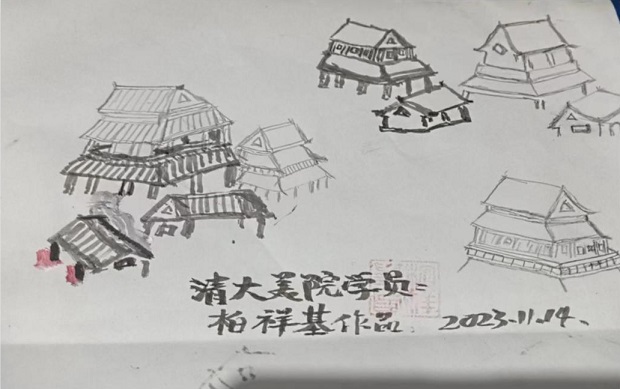 清大美院学员:
柏祥基作品. 2023.11.14.